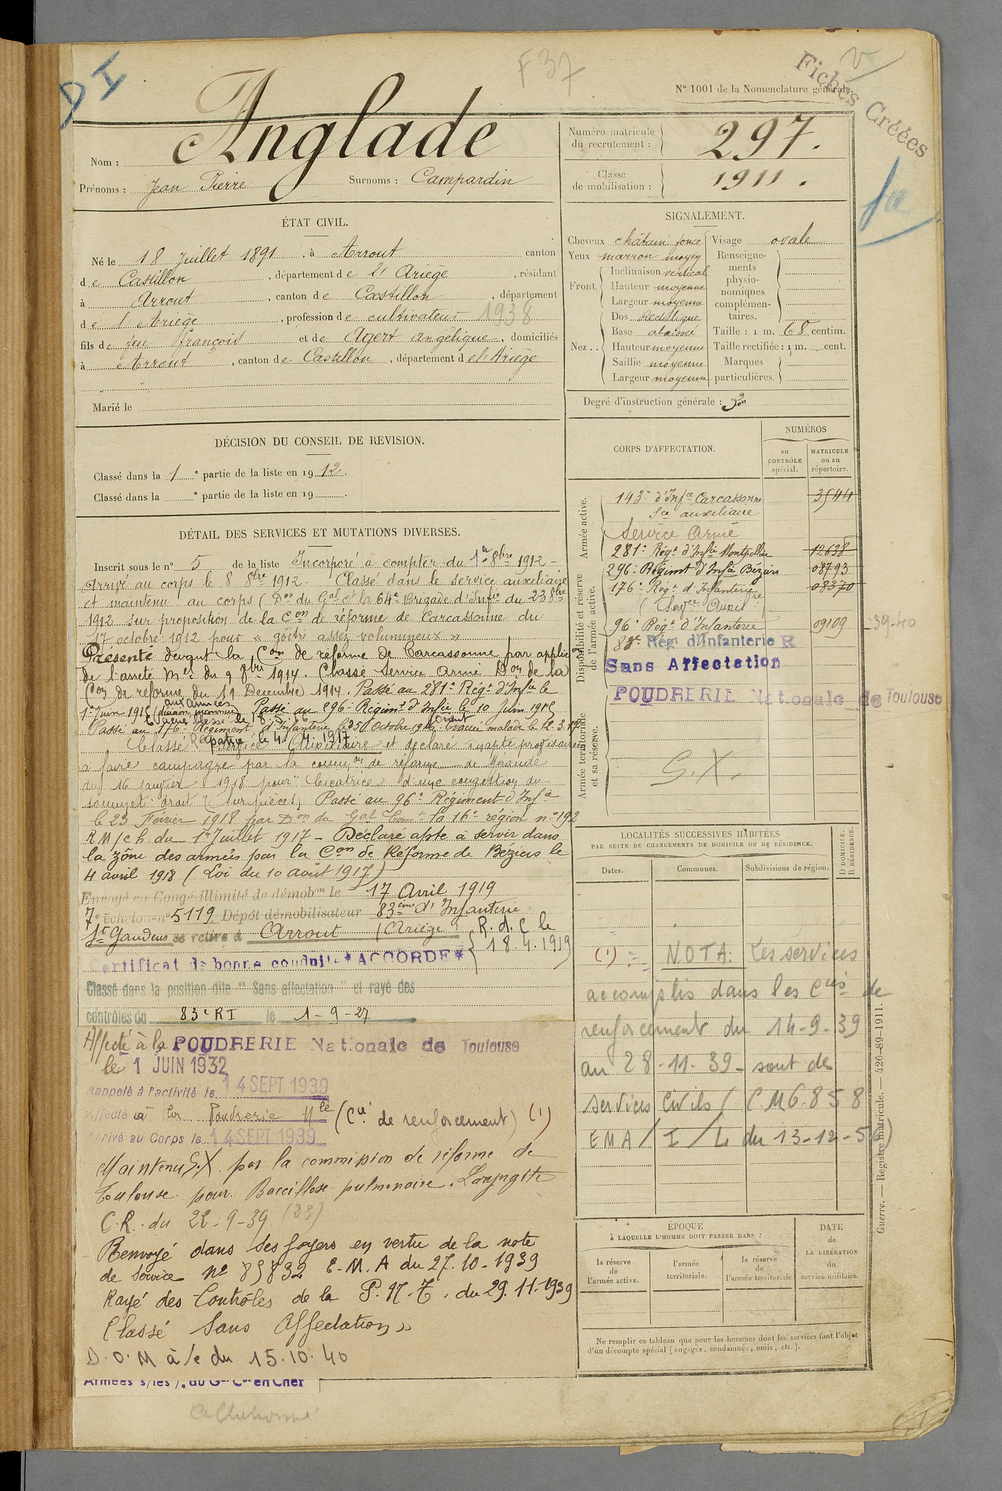 D I
F37
Fiches Créées
N° 1001 de la Nomenclature générale.
Nom : Anglade
Prénoms : Jean Pierre Surnoms : Campardin
Numéro matricule du recrutement : 297.
Classe de mobilisation : 1911.
ÉTAT CIVIL.
Né le 18 Juillet 1891, à Arrout canton
de Castillon, département de l'Ariège, résidant
à Arrout, canton de Castillon, département
de l'Ariège, profession de cultivateur 1938
fils de feu François et de Agert angélique, domiciliés
à Arrout, canton de Castillon, département de l'Ariège
Marié le
SIGNALEMENT.
Cheveux châtain foncé
Yeux marron moyen
Front
Inclinaison vertical
Hauteur moyenne
Largeur moyenne
Nez
Dos rectiligne
Base abaissé
Hauteur moyenne
Saillie moyenne
Largeur moyenne
Visage ovale
Renseignements physionomiques complémentaires.
Taille : 1 m. 68 centim.
Taille rectifiée : 1 m. cent.
Marques particulières.
Degré d'instruction générale : 3
DÉCISION DU CONSEIL DE REVISION.
Classé dans la 1e partie de la liste en 1912.
Classé dans la e partie de la liste en 19 .
DÉTAIL DES SERVICES ET MUTATIONS DIVERSES.
Inscrit sous le n° 5 de la liste Incorporé à compter du 1er 8bre 1912 -
Arrivé au corps le 8 8bre 1912. Classé dans le service auxiliaire
et maintenu au corps (Don du Gal Ct la 64e Brigade d'Infie du 23 8bre
1912 sur proposition de la Con de réforme de Carcassonne du
17 octobre 1912 pour « goitre assez volumineux »
Présenté devant la Con de réforme de Carcassonne par applion
de l'arrêté Mel du 9 9bre 1914. Classé Service Armé Don de la
Con de réforme du 19 Decembre 1914. Passé au 281e Régt d'Infie le
1er Juin 1915 Passé au 296e Régiment d'Infie le 10 juin 1915
Passé au 176e Régiment d'Infanterie le 25 Octobre 1916 Evacué malade le 12.3.17
Rapatrié le 4.4.1917
Classé Service Auxiliaire et déclaré inapte provisoire
à faire campagne par la common de réforme de Mirande
du 16 janvier 1918 pour "Cicatrice d'une congestion du
sommet droit" (sur pièces) Passé au 96e Régiment d'Infie
le 25 Février 1918 par Don du Gal Comt la 16e région n° 192
RM/ch du 1er Juillet 1917 - Déclaré apte à servir dans
la zône des armées par la Con de Réforme de Béziers le
4 avril 1918 (Loi du 10 août 1917)
Envoyé en Congé illimité de démobon le 17 Avril 1919
7e échelon n° 5119 Dépôt démobilisateur 83eme d'Infanterie
St Gaudens se retire à Arrout (Ariège) R.d.C le 18.4.1919
Certificat de bonne conduite *ACCORDE*
Classé dans la position dite "Sans affectation" et rayé des
contrôles du 83e RI le 1-9-27
Affecté à la POUDRERIE Nationale de Toulouse
le 1 JUIN 1932
Rappelé à l'activité le 14 SEPT 1939
Affecté à la Poudrerie Nle (Cie de renforcement) (1)
Arrivé au Corps le 14 SEPT 1939
Maintenu S.X. par la commission de réforme de
Toulouse pour Baccillose pulmonaire. Laryngite
C.R. du 22-9-39
Renvoyé dans ses foyers en vertu de la note
de service n° 85832 E.M.A du 27.10.1939
Rayé des Contrôles de la P.N.T. du 29.11.1939
Classé Sans Affectation »
D.O.M à/c du 15.10.40
CORPS D'AFFECTATION.
NUMÉROS
AU CONTRÔLE spécial.
MATRICULE ou au répertoire.
Armée active.
143e d'Infie Carcassonne 3544
Son auxiliaire
Service Armé
Disponibilité et réserve de l'armée active.
281e Régt d'Infie Montpellier 12628
296e Régiment d'Infie Béziers 08793
176e Regt d'Infanterie 08370
96e Régt d'Infanterie 09109 39-40
83e Rég. d'Infanterie R
Sans Affectation
POUDRERIE Nationale de Toulouse
Armée territoriale et sa réserve.
S.X.
LOCALITÉS SUCCESSIVES HABITÉES
PAR SUITE DE CHANGEMENTS DE DOMICILE OU DE RÉSIDENCE.
D. DOMICILE. R. RÉSIDENCE.
Dates. Communes. Subdivisions de région.
(1) = NOTA: Les services
accomplis dans les Cies de
renforcement du 14-9-39
au 28-11-39 - sont de
services Civils (CM 6.858
EMA/I/L du 13-12-5
ÉPOQUE
À LAQUELLE L'HOMME DOIT PASSER DANS :
la réserve de l'armée active.
l'armée territoriale.
la réserve de l'armée territoriale.
DATE de LA LIBÉRATION du service militaire.
Ne remplir ce tableau que pour les hommes dont les services font l'objet
d'un décompte spécial [engagés, condamnés, omis, etc.].
Guerre. — Registre matricule. — 426-89-1911.